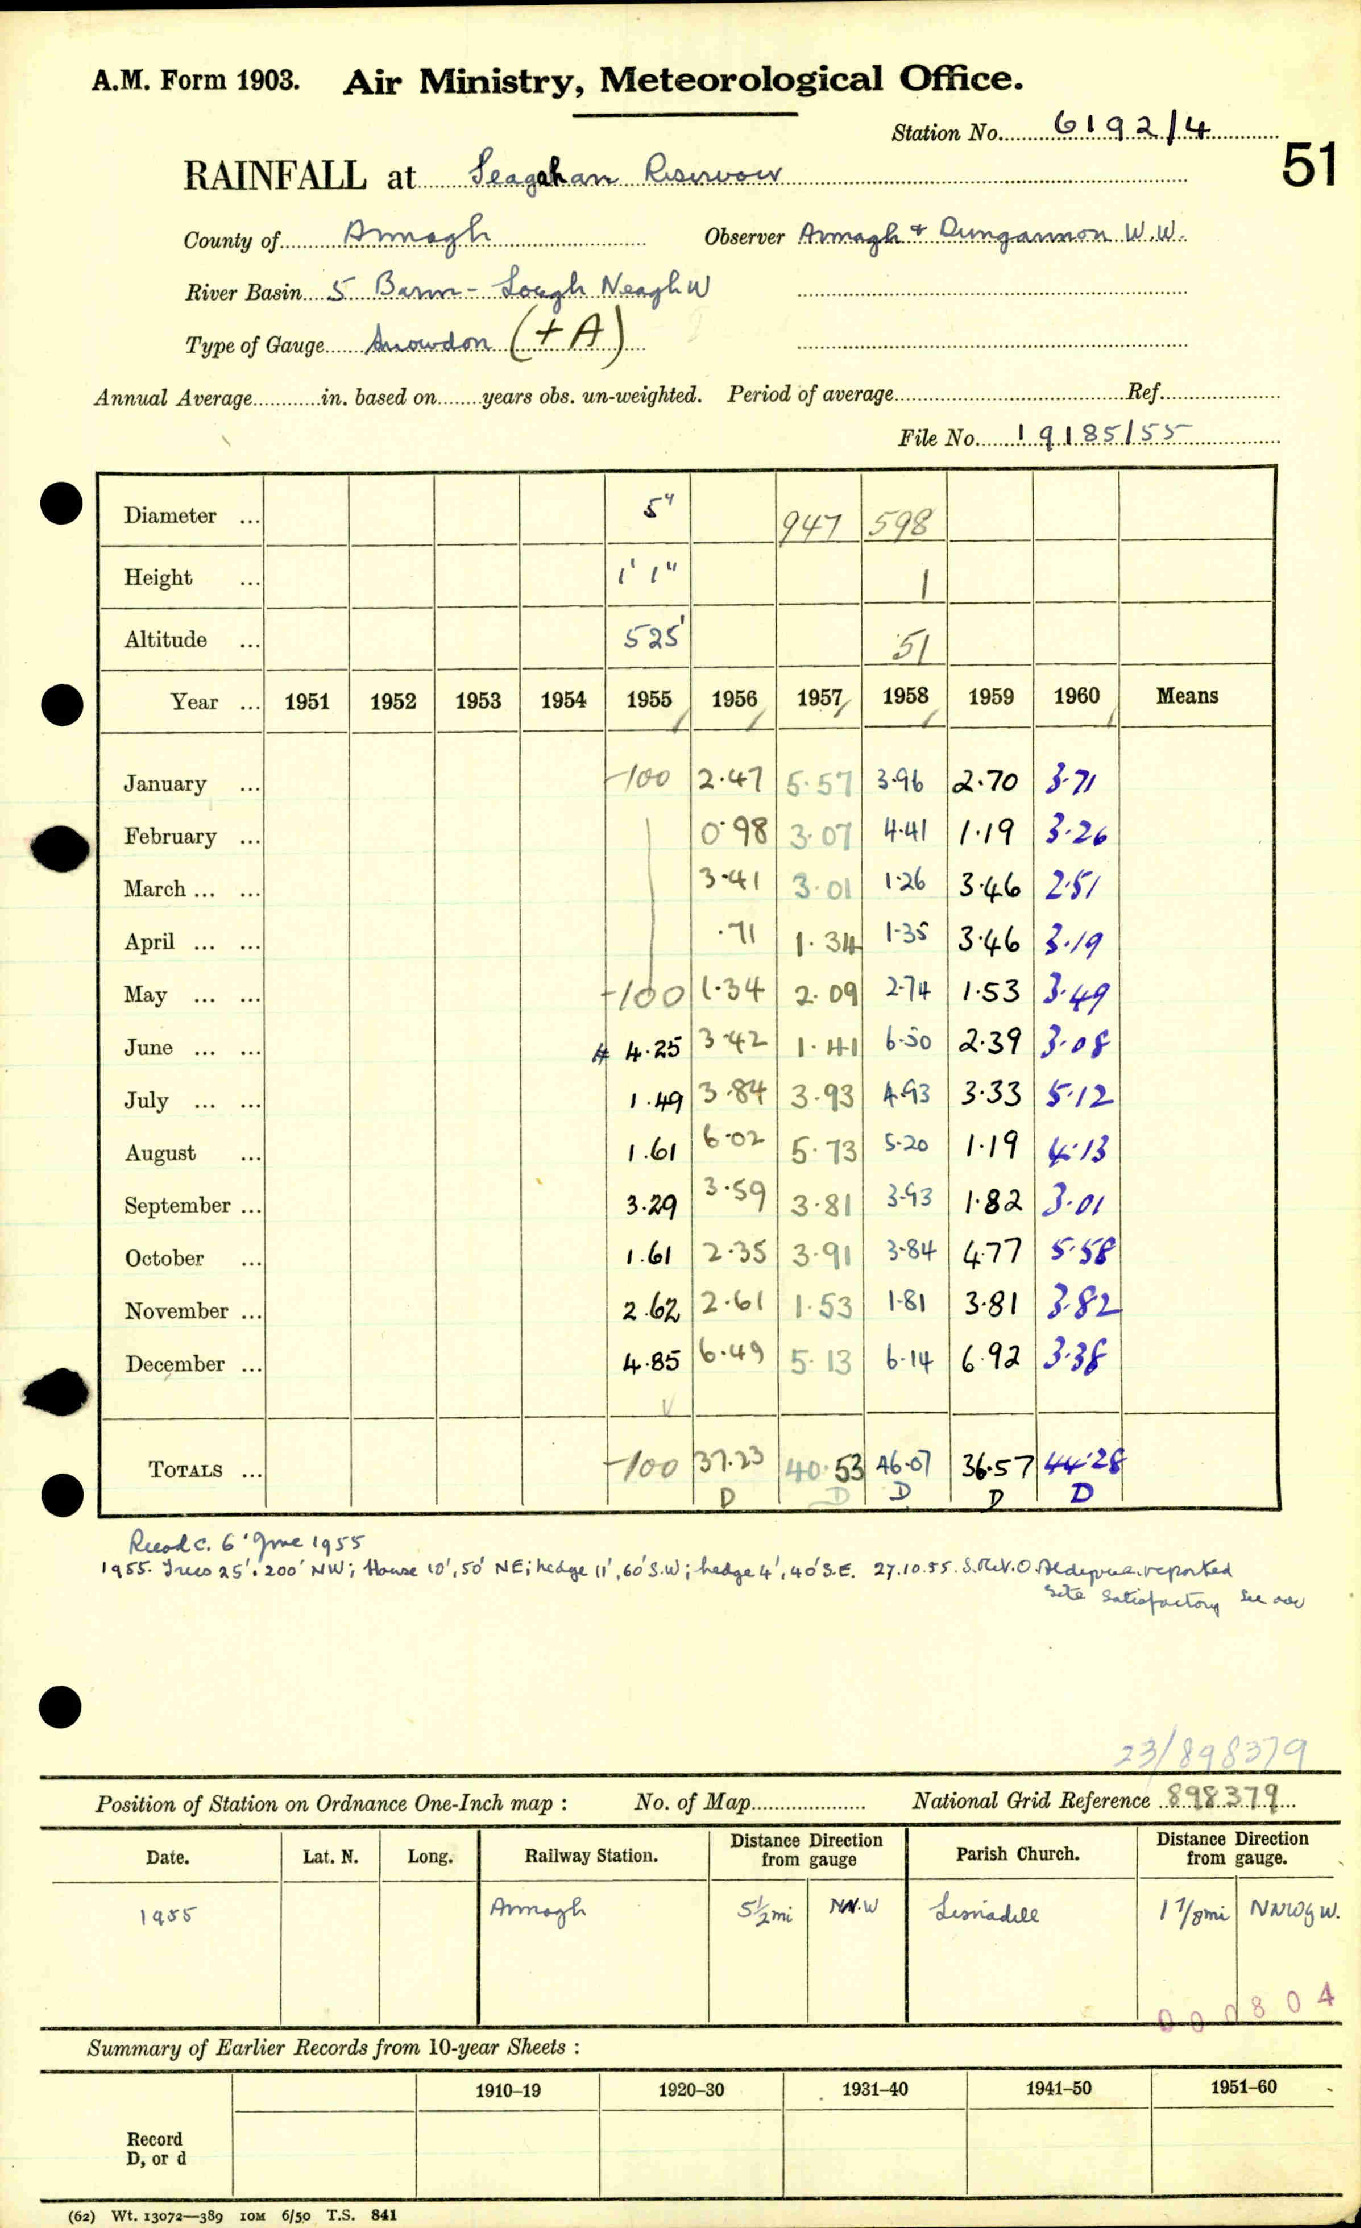 A.M. Form 1903. Air Ministry, Meteorological Office.
Station No. 6192/4
51
RAINFALL at Seagahan Reservoir
County of Armagh Observer Armagh & Dungannon W.W.
River Basin 5 Bann - Lough Neagh W
Type of Gauge Snowdon (+A)
Annual Average in. based on years obs. un-weighted. Period of average Ref.
File No. 19185/55
Diameter ... 5" 947 598
Height ... 1' 1" 1
Altitude ... 525' 51
Year ... 1951 1952 1953 1954 1955 1956 1957 1958 1959 1960 Means
January ... -100 2.47 5.57 3.96 2.70 3.71
February ... 0.98 3.07 4.41 1.19 3.26
March ... ... 3.41 3.01 1.26 3.46 2.51
April ... ... .71 1.34 1.35 3.46 3.19
May ... ... -100 1.34 2.09 2.74 1.53 3.49
June ... ... # 4.25 3.42 1.41 6.50 2.39 3.08
July ... ... 1.49 3.84 3.93 4.93 3.33 5.12
August ... 1.61 6.02 5.73 5.20 1.19 4.13
September ... 3.29 3.59 3.81 3.93 1.82 3.01
October ... 1.61 2.35 3.91 3.84 4.77 5.58
November ... 2.62 2.61 1.53 1.81 3.81 3.82
December ... 4.85 6.49 5.13 6.14 6.92 3.38
TOTALS ... -100 37.23 40.53 46.07 36.57 44.28
D D D D D
Record c. 6' June 1955
1955. Trees 25', 200' NW; House 10', 50' NE; hedge 11', 60' S.W; hedge 4', 40' S.E. 27.10.55. reported
Site Satisfactory See
23/898379
Position of Station on Ordnance One-Inch map : No. of Map National Grid Reference 898379
Date. Lat. N. Long. Railway Station. Distance Direction from gauge Parish Church. Distance Direction from gauge.
1955 Armagh 5½ mi NN.W Lisnadill 1 7/8 mi NNW by W.
000804
Summary of Earlier Records from 10-year Sheets :
1910–19 1920–30 1931–40 1941–50 1951–60
Record
D, or d
(62) Wt. 13072—389 10M 6/50 T.S. 841